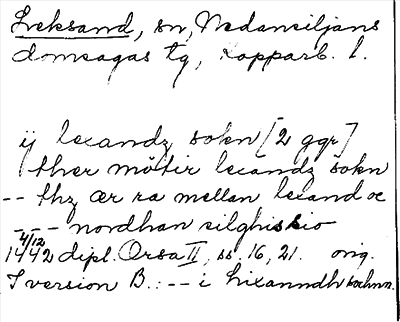 Leksand, sn, Nedansiljans
domsagas tg, Kopparb. l.
ij lexandz sokn [2 ggr]
ther mötir lexandz sokn
-- thz ær ra mellan lexand oc
--- nordhan silghissio
4/12 1442 dipl. Orsa II, ss. 16, 21. orig.
I version B.: -- i lixanndh sochnn.